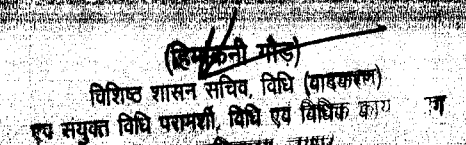 (हिमाकनी गौड़)
विशिष्ठ शासन सचिव, विधि (वादकरण)
एवं संयुक्त विधि परामर्शी, विधि एवं विधिक काय